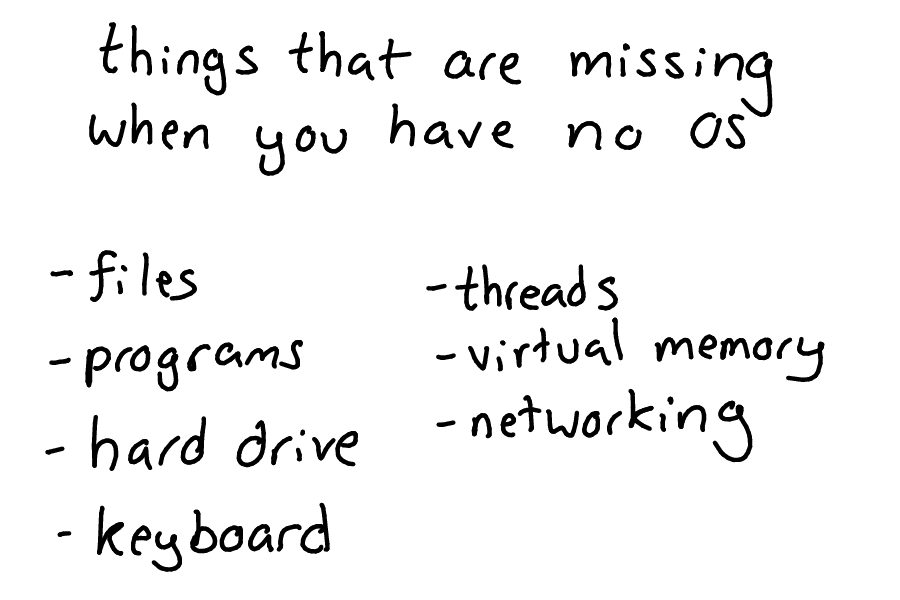 things that are missing
when you have no OS
- files
- programs
- hard drive
- keyboard
- threads
- virtual memory
- networking